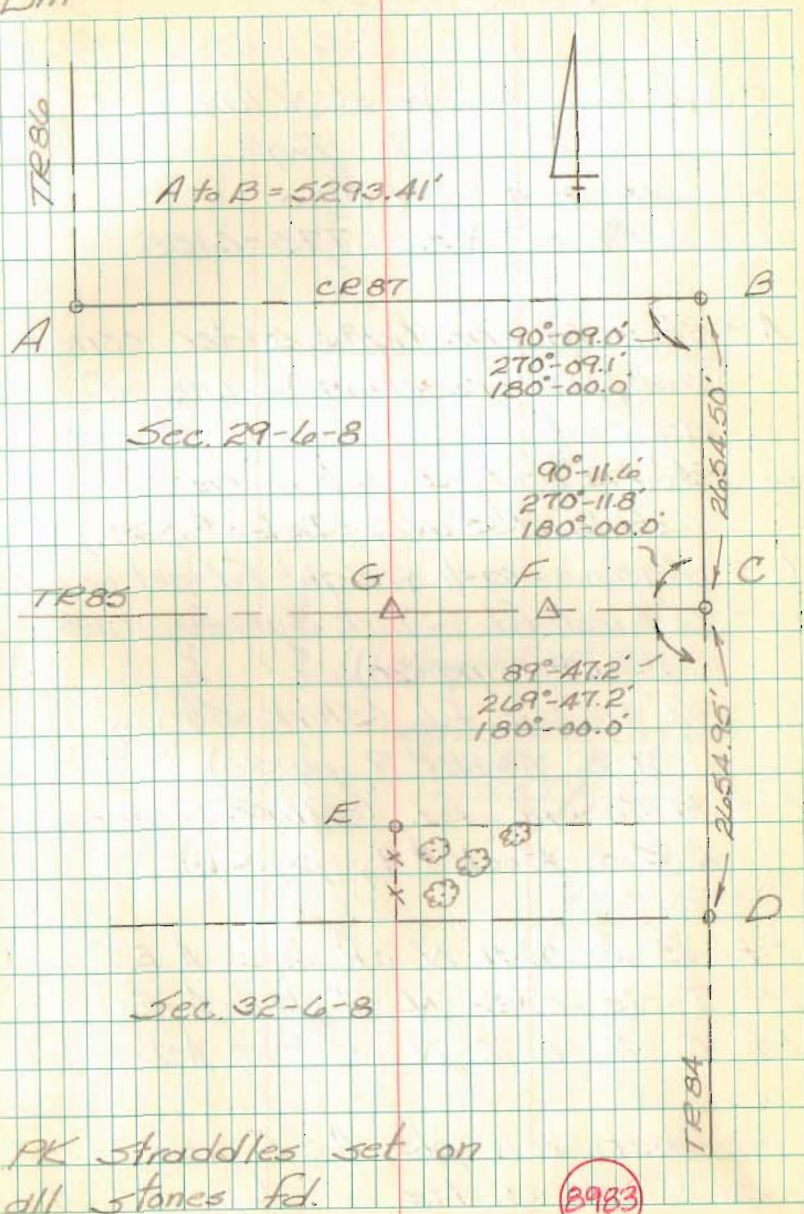 TR 86
A to B = 5293.41'
CR 87
A
B
90°-09.0'
270°-09.1'
180°-00.0'
2654.50'
Sec. 29-6-8
90°-11.6'
270°-11.8'
180°-00.0'
TR 85
G
F
C
89°-47.2'
269°-47.2'
180°-00.0'
2654.95'
E
D
Sec. 32-6-8
TR 84
PK straddles set on
all stones fd.
8983